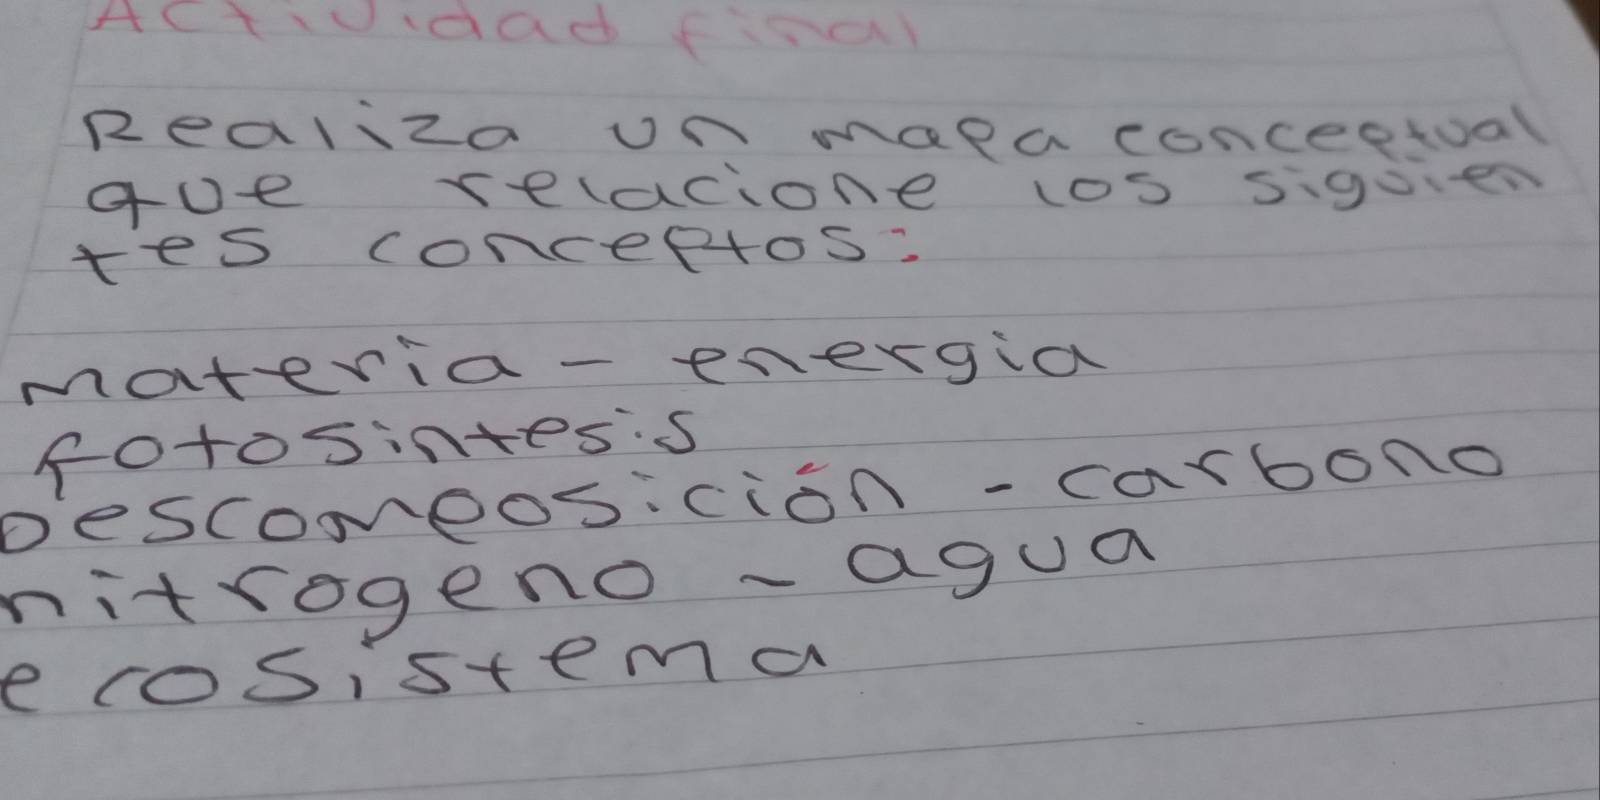 Actividad final
Realiza un mapa conceptual
que relacione los siguien
tes conceptos:
Materia - energia
fotosintesis
Descomposición - carbono
nitrogeno - agua
ecosistema